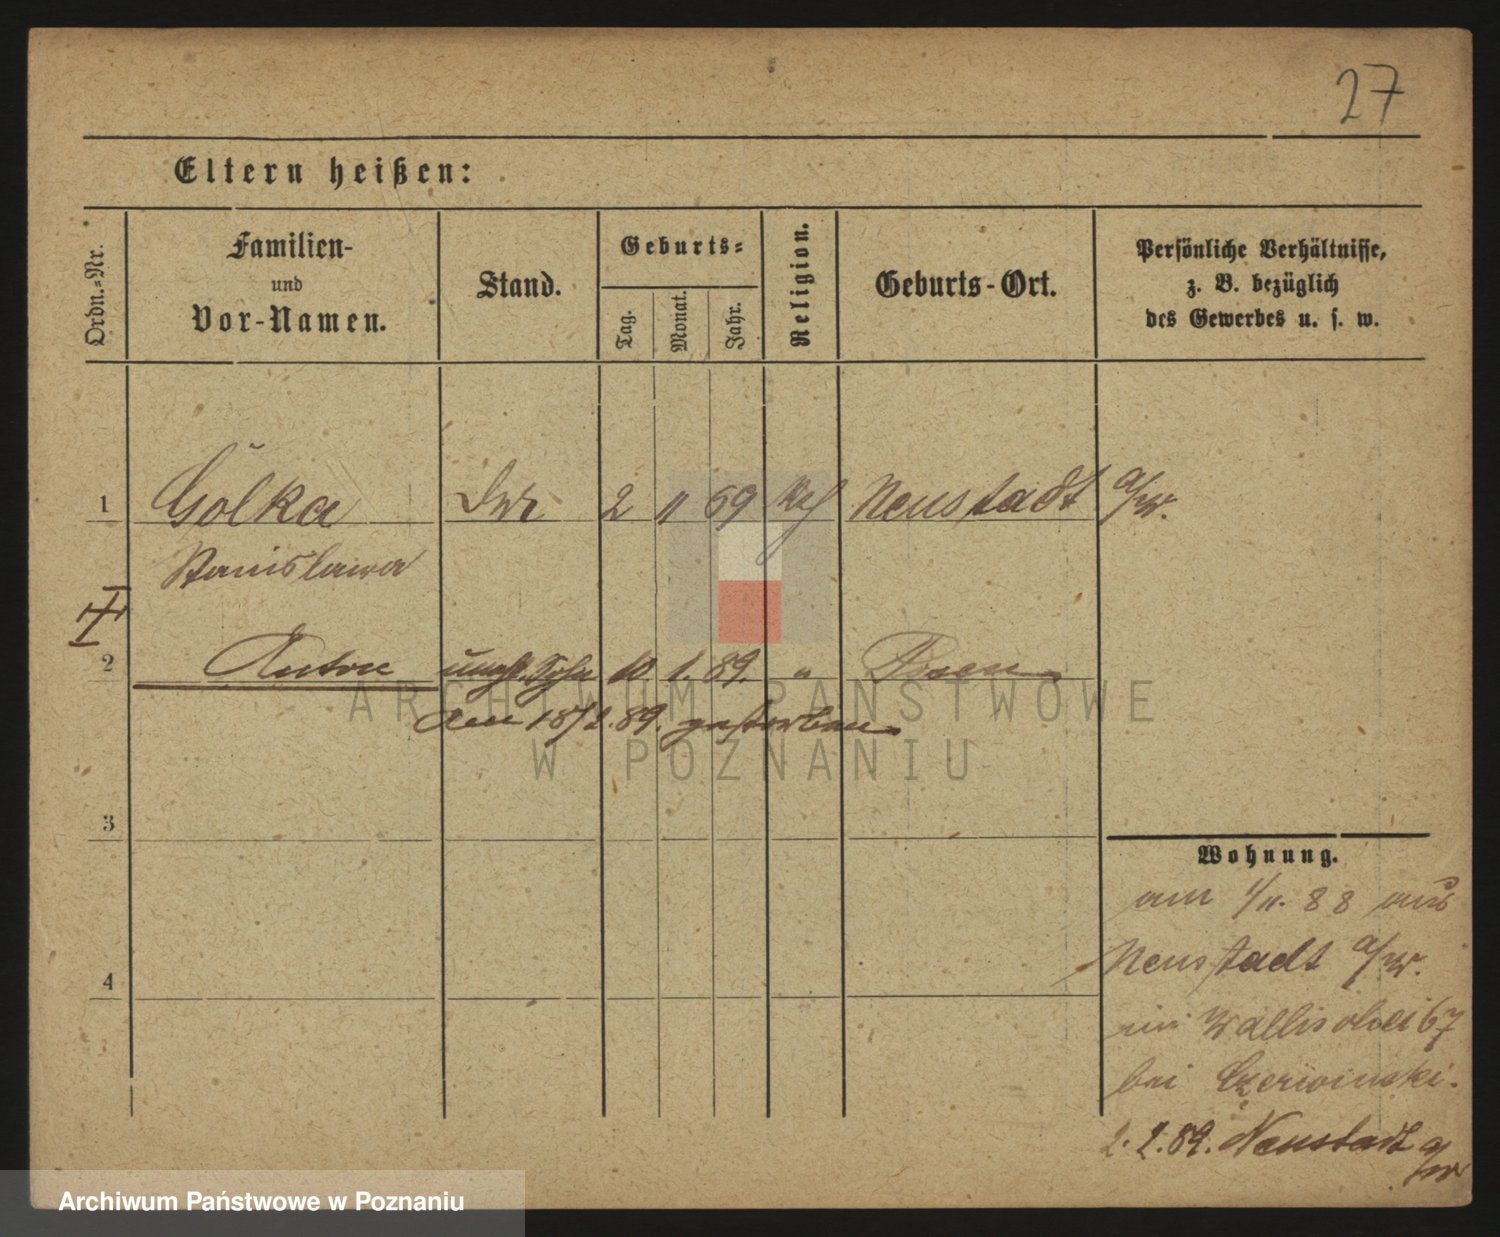 27
Eltern heißen:
Ordn.-Nr.
Familien-
und
Vor-Namen.
Stand.
Geburts-
Tag.
Monat.
Jahr.
Religion.
Geburts-Ort.
Persönliche Verhältnisse,
z. B. bezüglich
des Gewerbes u. s. w.
1 Golka 2 11 69 kath Neustadt a/W.
Stanislawa
2 Anton unehl. Sohn 10. 1. 89. " Posen
am 18/1.89. gestorben
3
4
Wohnung.
am 1/11. 88 aus
Neustadt a/W.
in Wallischei 67
bei Czerwinski.
2. 2. 89. Neustadt a/W
ARCHIWUM PAŃSTWOWE
W POZNANIU
Archiwum Państwowe w Poznaniu